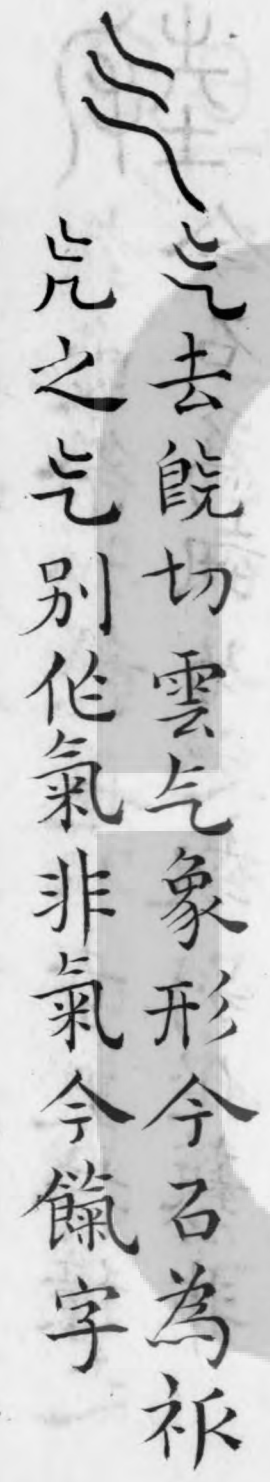 气
气去旣切雲气象形今㠯為祈
气之气別作氣非氣今餼字